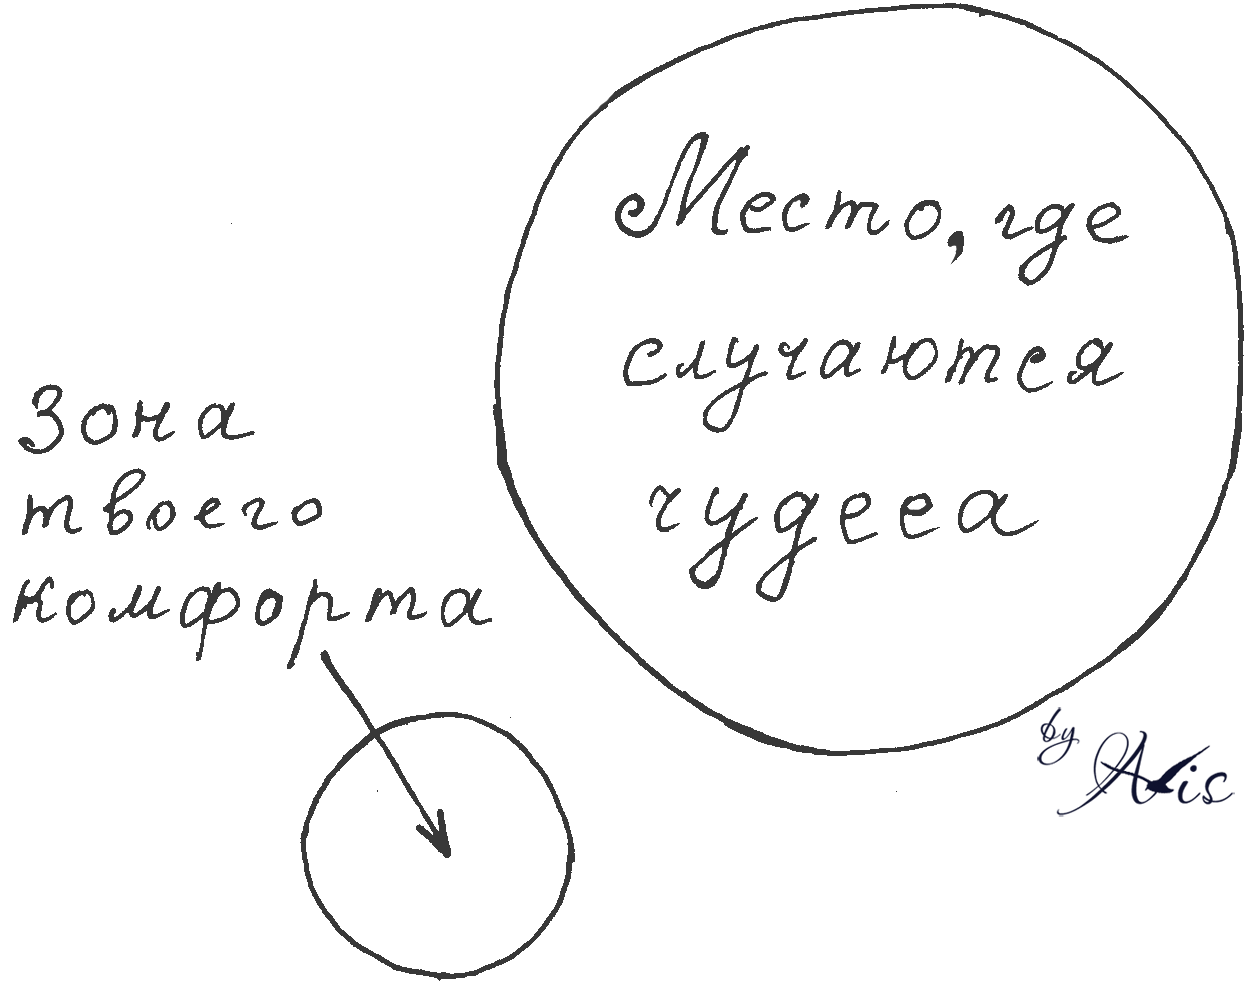 Место, где
случаются
чудеса
Зона
твоего
комфорта
by
Avis